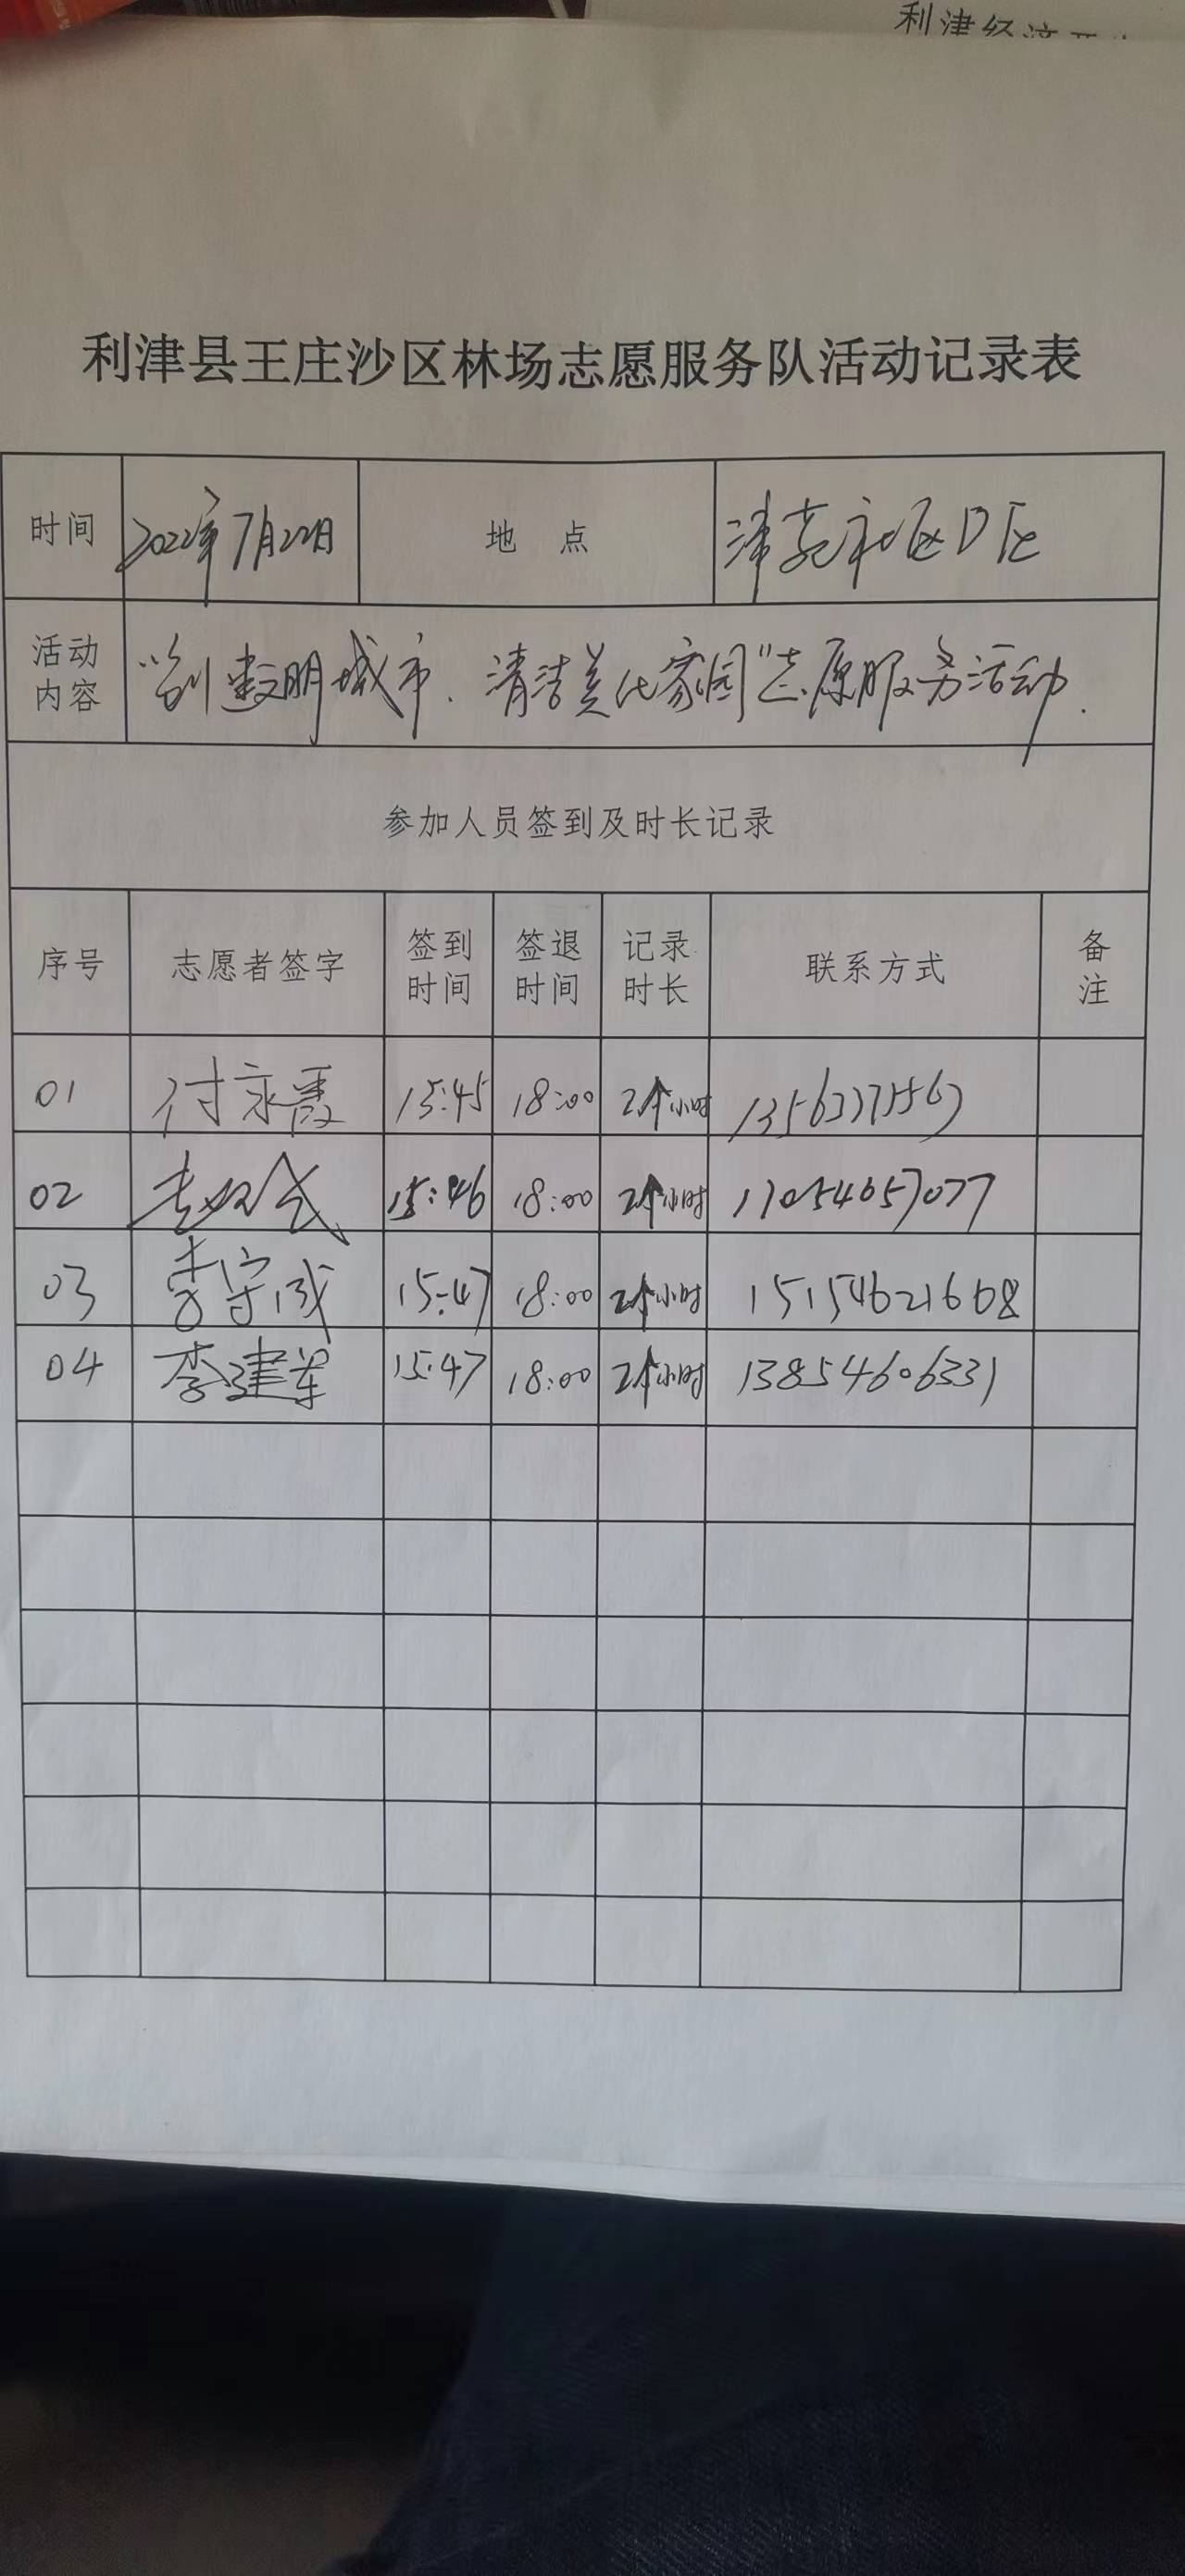 利津经济开
利津县王庄沙区林场志愿服务队活动记录表
时间 2022年7月22日 地 点 津苑社区D区
活动内容 "创建文明城市、清洁美化家园"志愿服务活动.
参加人员签到及时长记录
序号 志愿者签字 签到时间 签退时间 记录时长 联系方式 备注
01 付永霞 15:45 18:00 2个小时
02 15:46 18:00 2个小时
03 李守成 15:47 18:00 2个小时 15154621668
04 李建军 15:47 18:00 2个小时 13854606331